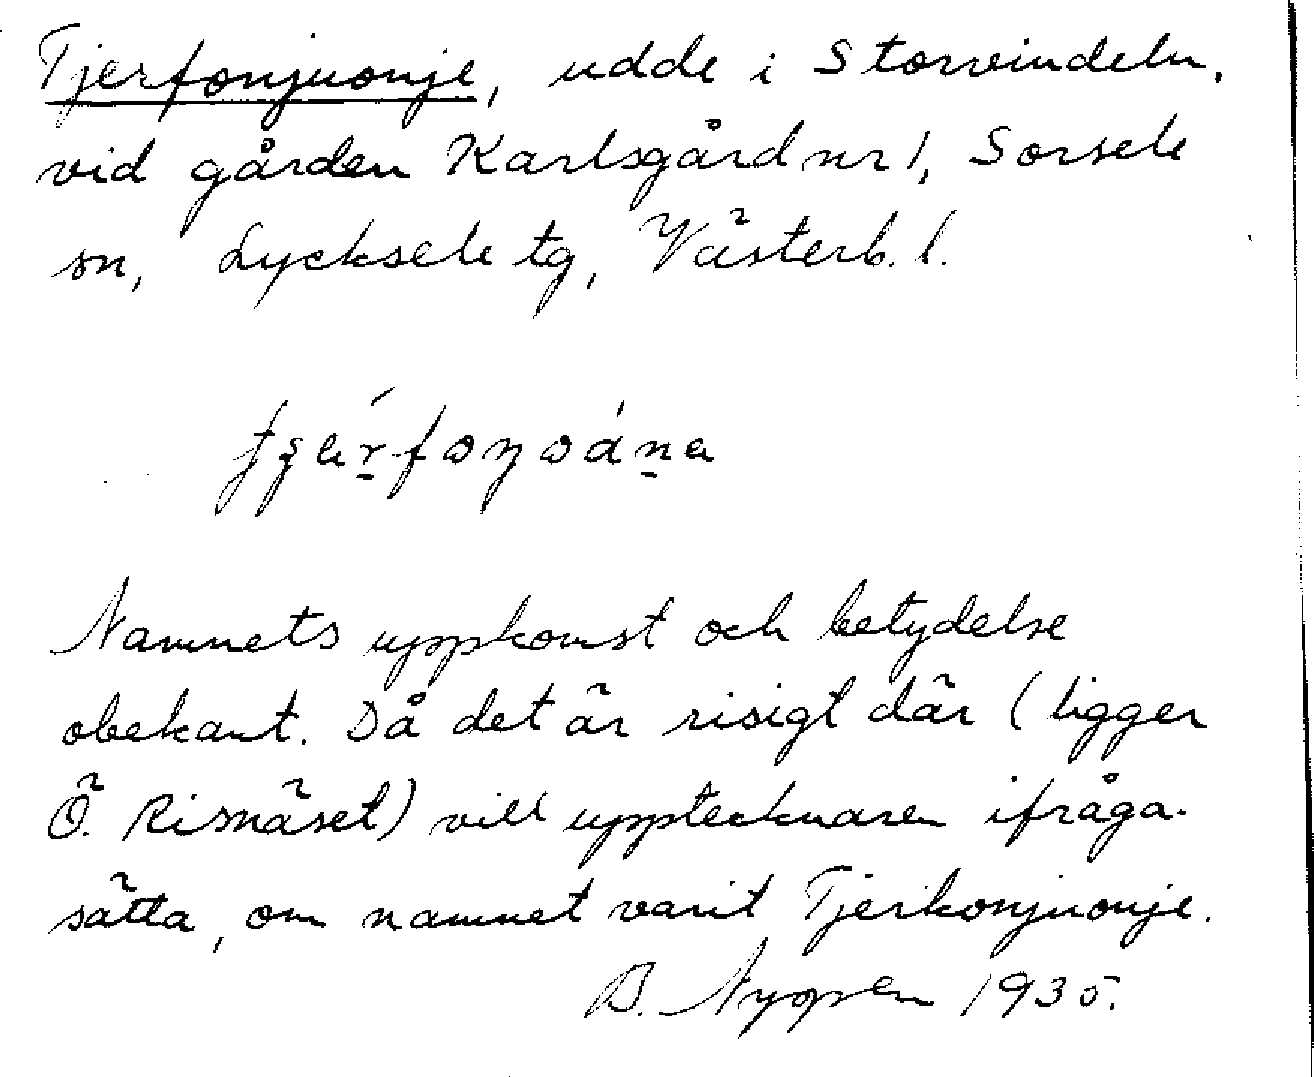 Tjerfonjuonje, udde i Storvindeln,
vid gården Karlsgård nr 1, Sorsele
sn, Lycksele tg, Västerb. l.
Namnets uppkomst och betydelse
obekant. Då det är risigt där (ligger
Ö. Risnäset) vill upptecknaren ifråga-
sätta, om namnet varit Tjerkonjuonje.
B. 1935.